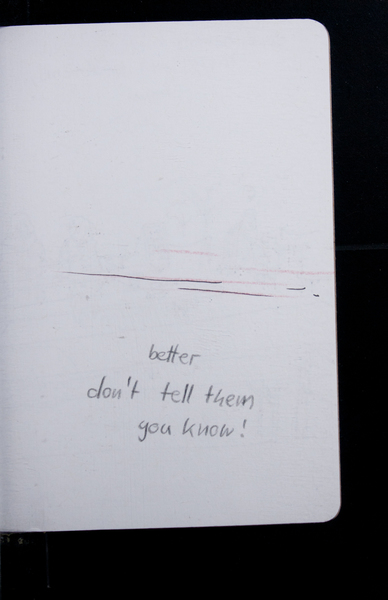 better
don't tell them
you know!